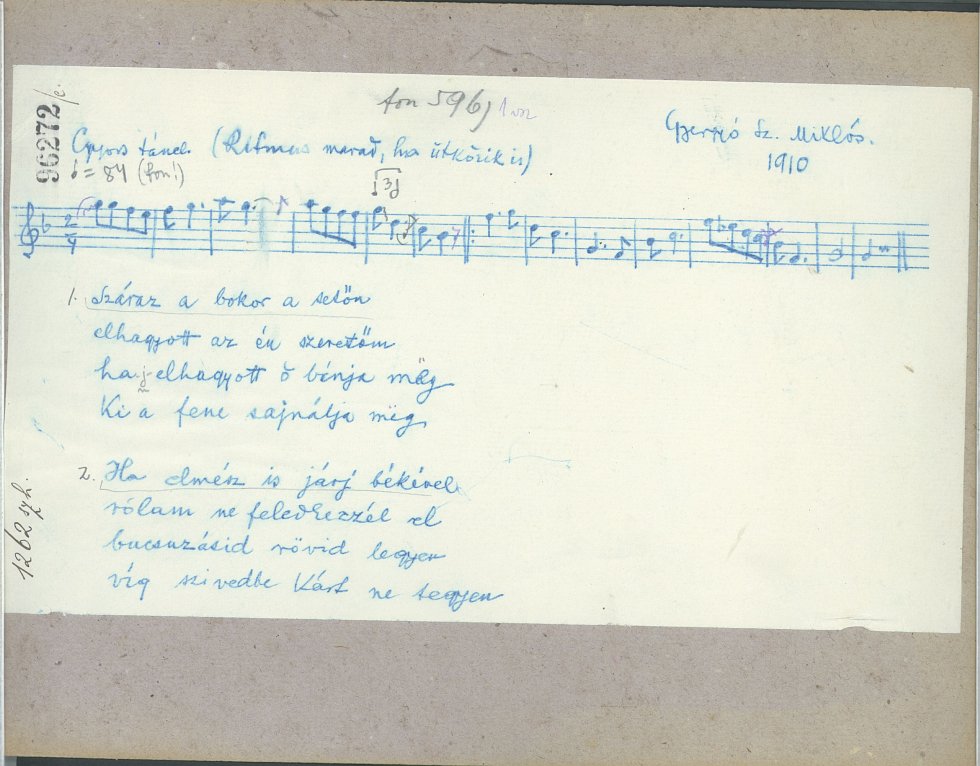 96272/c.
fon 596) 1 vsz
Gyergyó Sz. Miklós.
1910
Gyors tánc. (Ritmus marad, ha ütközik is)
♩= 84 (fon!)
3
2/4
1. Száraz a bokor a tetőn
elhagyott az én szeretőm
ha j elhagyott ő bánja mëg
Ki a fene sajnálja mëg
2. Ha elmész is járj békével
rólam ne feledkezzél el
bucsuzásid rövid legyen
víg szivedbe kárt ne tegyen
1262 szh.